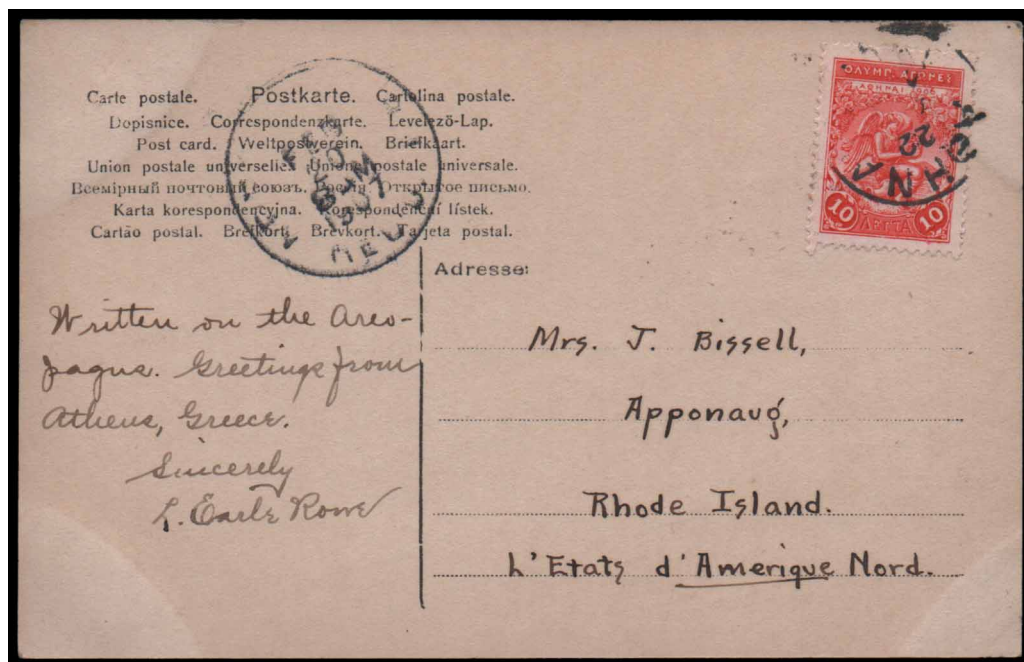 Carte postale. Postkarte. Cartolina postale.
Dopisnice. Correspondenzkarte. Levelező-Lap.
Post card. Weltpostverein. Briefkaart.
Union postale universelle. Unione postale universale.
Всемірный почтовый союзъ. Россія. Открытое письмо.
Karta korespondencyjna. Korespondenční lístek.
Cartão postal. Brefkort. Brevkort. Tarjeta postal.
FEB
8 AM
1907
REC'D
ΟΛΥΜΠ. ΑΓΩΝΕΣ
ΑΘΗΝΑΙ
22
ΑΘΗΝΑ
10 ΛΕΠΤΑ 10
Adresse:
Written on the Areo-
pagus. Greetings from
Athens, Greece.
Sincerely
L. Earle Rowe
Mrs. J. Bissell,
Apponaug,
Rhode Island.
L'Etats d'Amerique Nord.